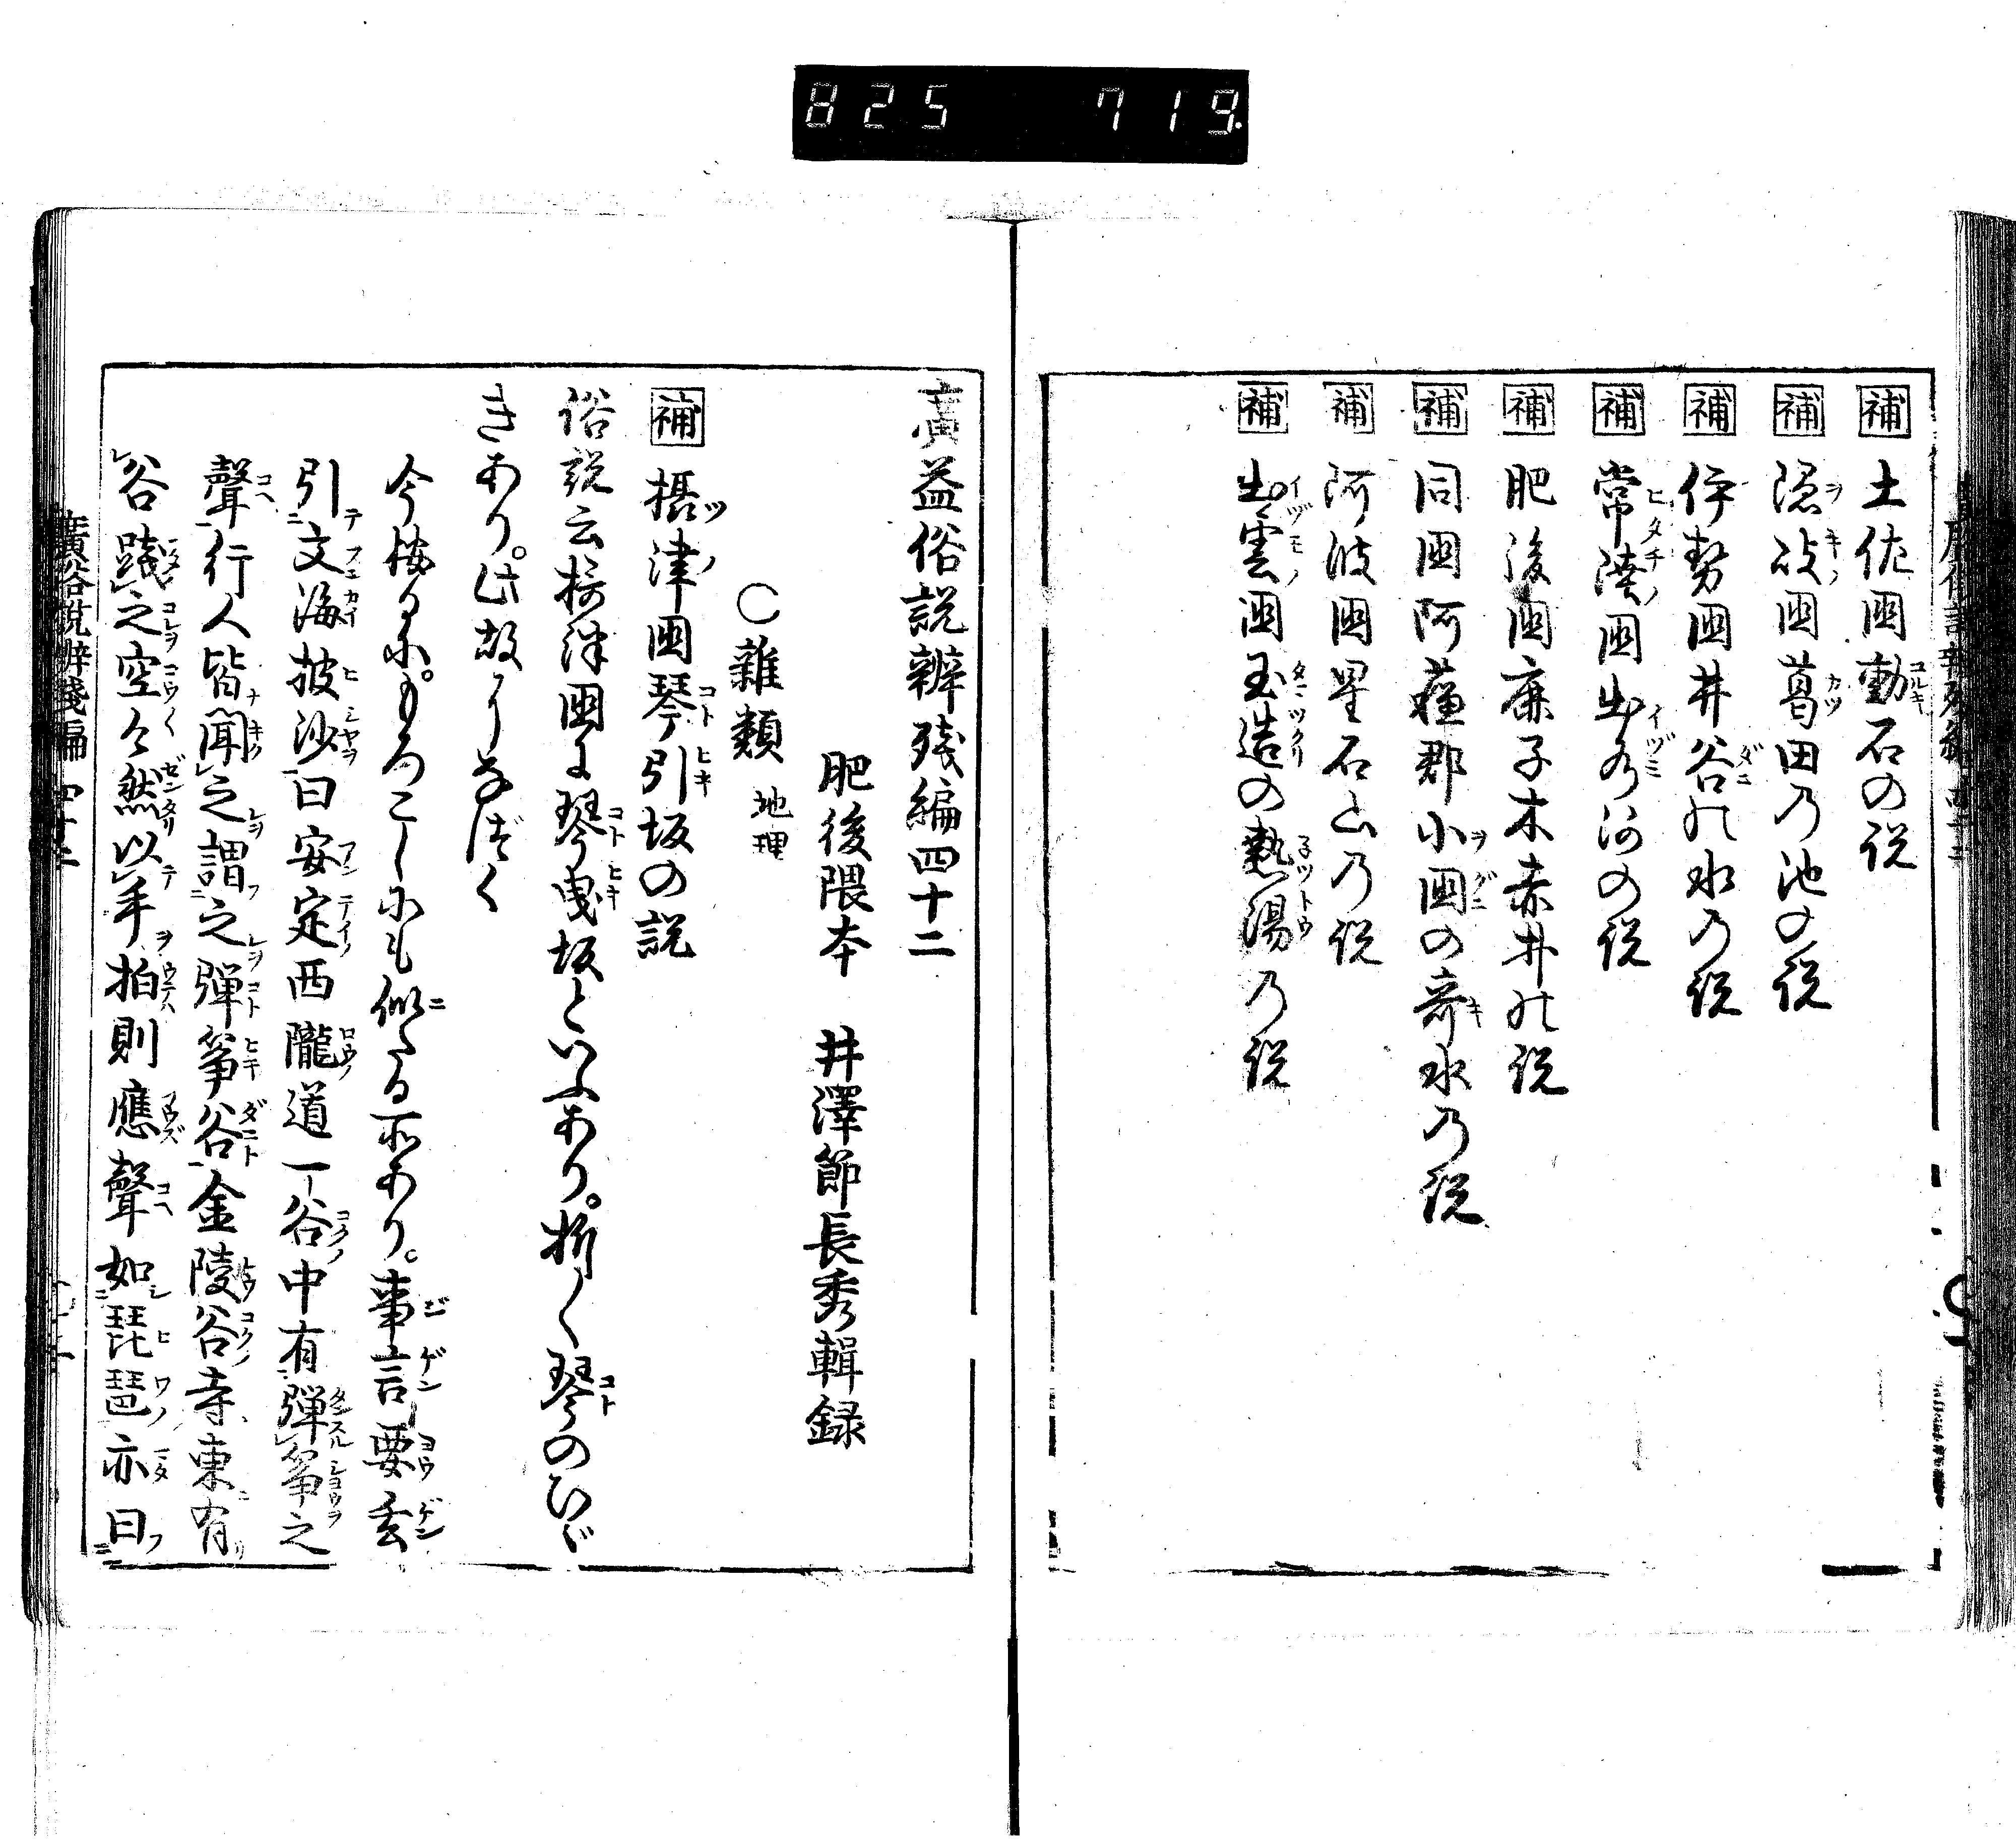 825 719.
補 土佐國動石の説
補 隠岐國葛田乃池の説
補 伊勢國井谷の水乃説
補 常陸國出水河の説
補 肥後國廉子木赤井の説
補 同國阿蘓郡小國の竒水乃説
補 阿波國星石山乃説
補 出雲國玉造の熱湯乃説
廣益俗説辨残編四十二
肥後隈本 井澤節長秀輯録
〇雜類 地理
補 摂津國琴引坂の説
俗説云摂津國に琴曳坂といふあり。折〱琴のひゞ
きあり。此故にかく名づく
今按るに。もろこしにも似たる所あり。事言要玄
引文海披沙曰安定西隴道一谷中有弾筝之
聲行人皆聞之謂之弾筝谷金陵谷寺東有
谷踐之空々然以手拍則應聲如琵琶亦曰
廣俗説辨残編 四十二